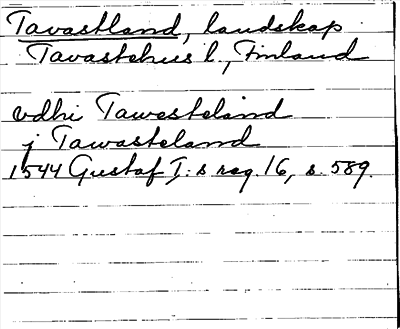 Tavastland, landskap
Tavastehus l., Finland
vdhi Tawesteland
j Tawasteland
1544 Gustaf I:s reg. 16, s. 589.